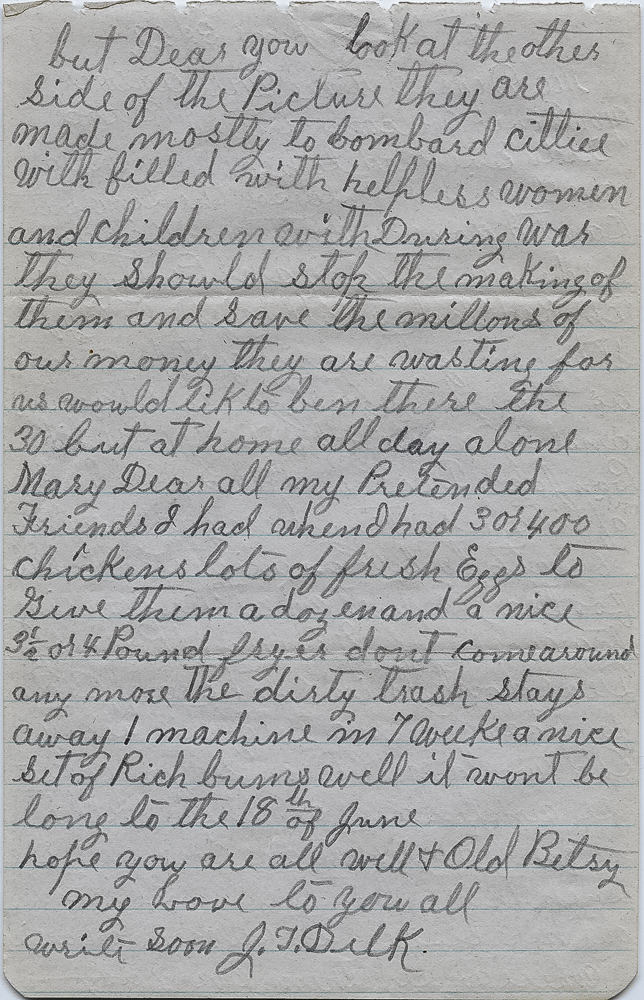 but Dear you look at the other
side of the Picture they are
made mostly to bombard citties
with filled with helpless women
and children with During War
they showld stop the making of
them and save the millons of
our money they are wasting for
us would lik to ben there the
30 but at home all day alone
Mary Dear all my Pretended
Friends I had when I had 3 or 400
chickens lots of fresh Eggs to
Give them a dozen and a nice
3½ or 4 Pound fryer dont come around
any more the dirty trash stays
away 1 machine in 7 weeks a nice
set of Rich bums well it wont be
long to the 18th of June
hope you are all well & Old Betsy
my Love to you all
write soon J. T. Dilk.